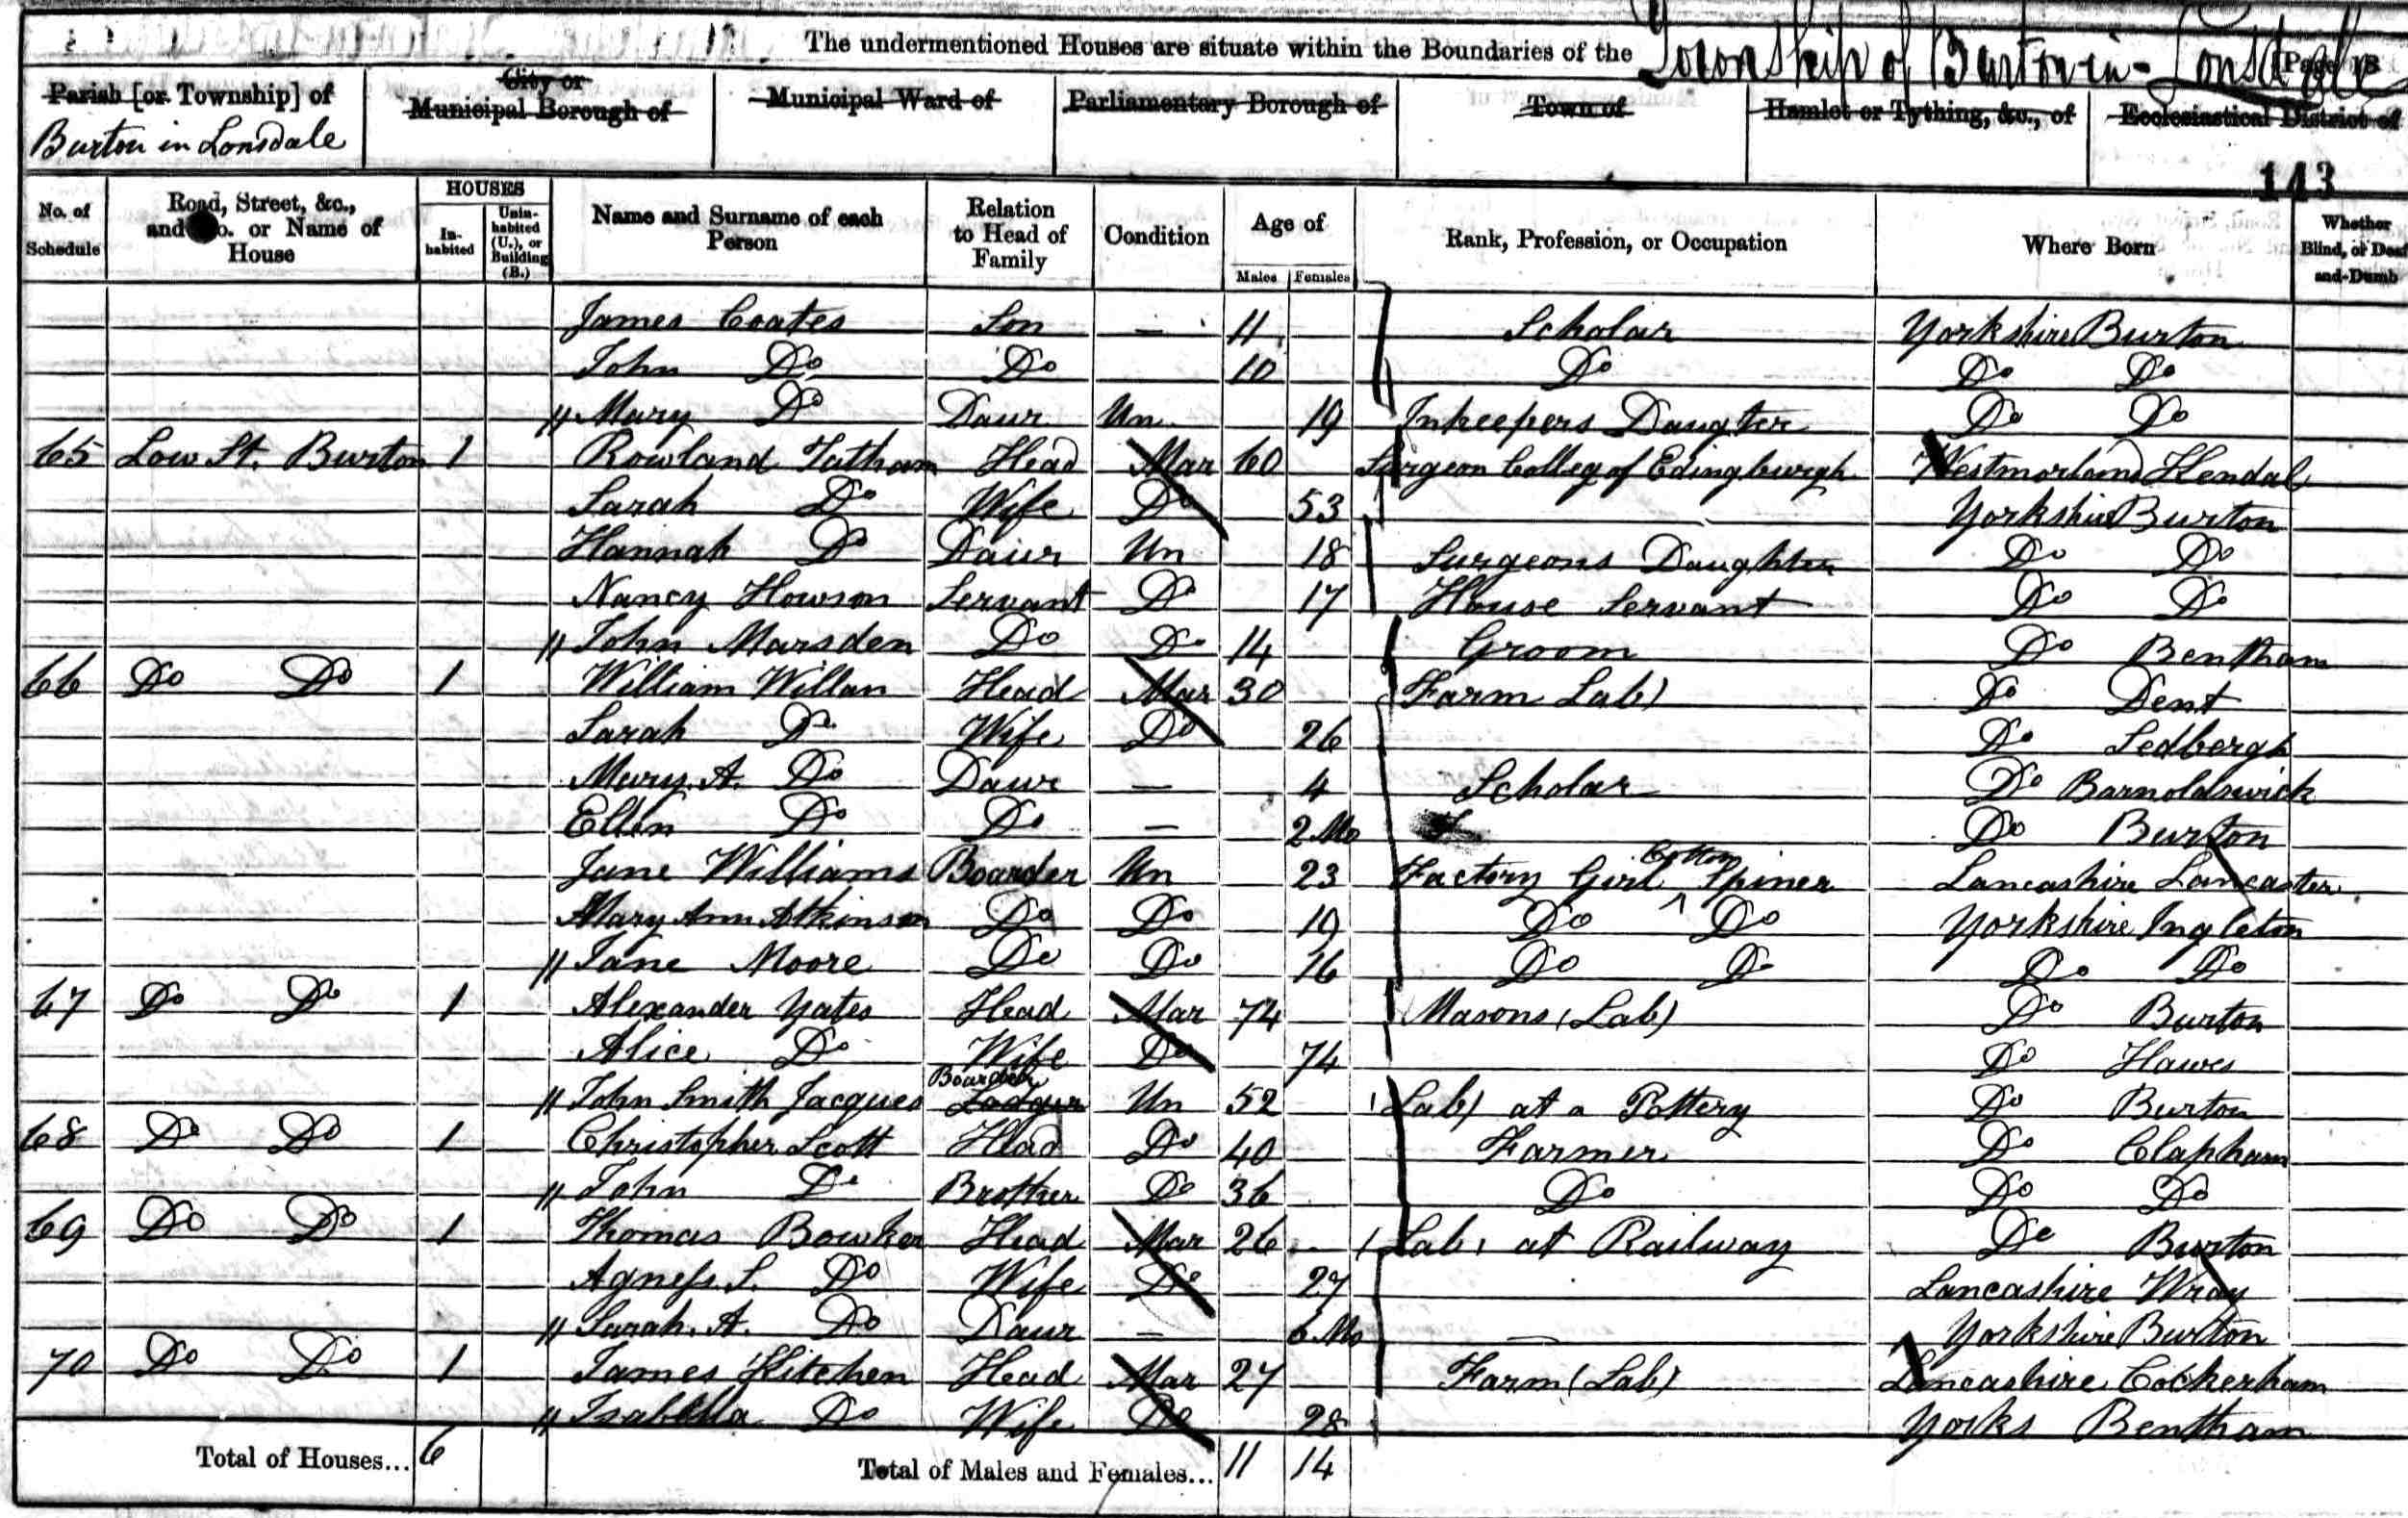 The undermentioned Houses are situate within the Boundaries of the Township of Burton in Lonsdale
Parish [or Township] of City or Municipal Borough of Municipal Ward of Parliamentary Borough of Town of Hamlet or Tything, &c., of Ecclesiastical District of
Burton in Lonsdale
143
No. of Schedule Road, Street, &c., and No. or Name of House HOUSES Inhabited Uninhabited (U.), or Building (B.) Name and Surname of each Person Relation to Head of Family Condition Age of Males Females Rank, Profession, or Occupation Where Born Whether Blind, or Deaf-and-Dumb
James Coates Son — 11 Scholar Yorkshire Burton
John Do Do 10 Do Do Do
Mary Do Daur Un 19 Inkeepers Daugter Do Do
65 Low St. Burton 1 Rowland Tatham Head Mar 60 Surgeon Colleg of Edingburgh Westmorland Kendal
Sarah Do Wife Do 53 Yorkshire Burton
Hannah Do Daur Un 18 Surgeons Daughter Do Do
Nancy Howson Servant Do 17 House Servant Do Do
John Marsden Do Do 14 Groom Do Bentham
66 Do Do 1 William Willan Head Mar 30 (Farm Lab) Do Dent
Sarah Do Wife Do 26 Do Sedbergh
Mary. A. Do Daur — 4 Scholar Do Barnoldswick
Ellen Do Do — 2 Mo Do Burton
Jane Williams Boarder Un 23 Factory Girl Cotton Spiner Lancashire Lancaster
Mary Ann Atkinson Do Do 19 Do Do Yorkshire Ingleton
Jane Moore Do Do 16 Do Do Do Do
67 Do Do 1 Alexander Yates Head Mar 74 Masons (Lab) Do Burton
Alice Do Wife Do 74 Do Hawes
John Smith Jacques Boarder Lodger Un 52 (Lab) at a Pottery Do Burton
68 Do Do 1 Christopher Scott Head Do 40 Farmer Do Clapham
John Do Brother Do 36 Do Do Do
69 Do Do 1 Thomas Bowker Head Mar 26 (Lab) at Railway Do Burton
Agness. S. Do Wife Do 27 Lancashire Wray
Sarah. A. Do Daur — 6 Mo — Yorkshire Burton
70 Do Do 1 James Kitchen Head Mar 27 Farm (Lab) Lancashire Cockerham
Isabella Do Wife Do 28 Yorks Bentham
Total of Houses... 6 Total of Males and Females... 11 14